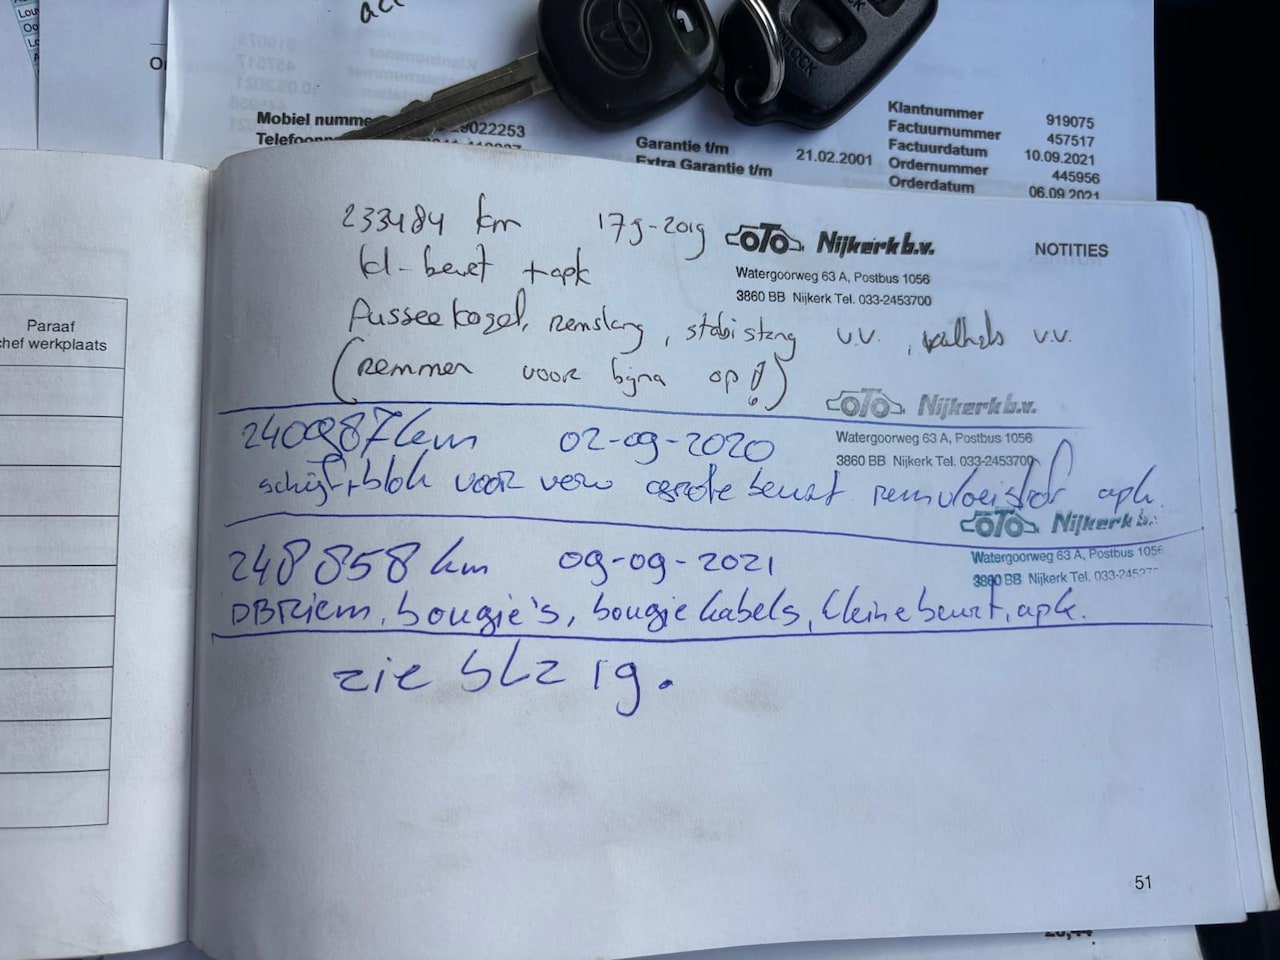 Mobiel numme
29022253
Telefoon
Garantie t/m 21.02.2001
Extra Garantie t/m
Klantnummer 919075
Factuurnummer 457517
Factuurdatum 10.09.2021
Ordernummer 445956
Orderdatum 06.09.2021
Paraaf
chef werkplaats
NOTITIES
233484 km 179-2019
OTO Nijkerk b.v.
Watergoorweg 63 A, Postbus 1056
3860 BB Nijkerk Tel. 033-2453700
kl-beurt + apk
Fusseekogel, remslang, stabistang v.v. , v.v.
(remmen voor bijna op!)
OTO Nijkerk b.v.
Watergoorweg 63 A, Postbus 1056
3860 BB Nijkerk Tel. 033-2453700
240987 km 02-09-2020
schijf+blok voor verv grote beurt remvloeistof apk.
OTO Nijkerk b.v.
Watergoorweg 63 A, Postbus 1056
3860 BB Nijkerk Tel. 033-24537
248858 km 09-09-2021
DBRiem, bougie's, bougie kabels, kleine beurt, apk.
zie blz 19.
51